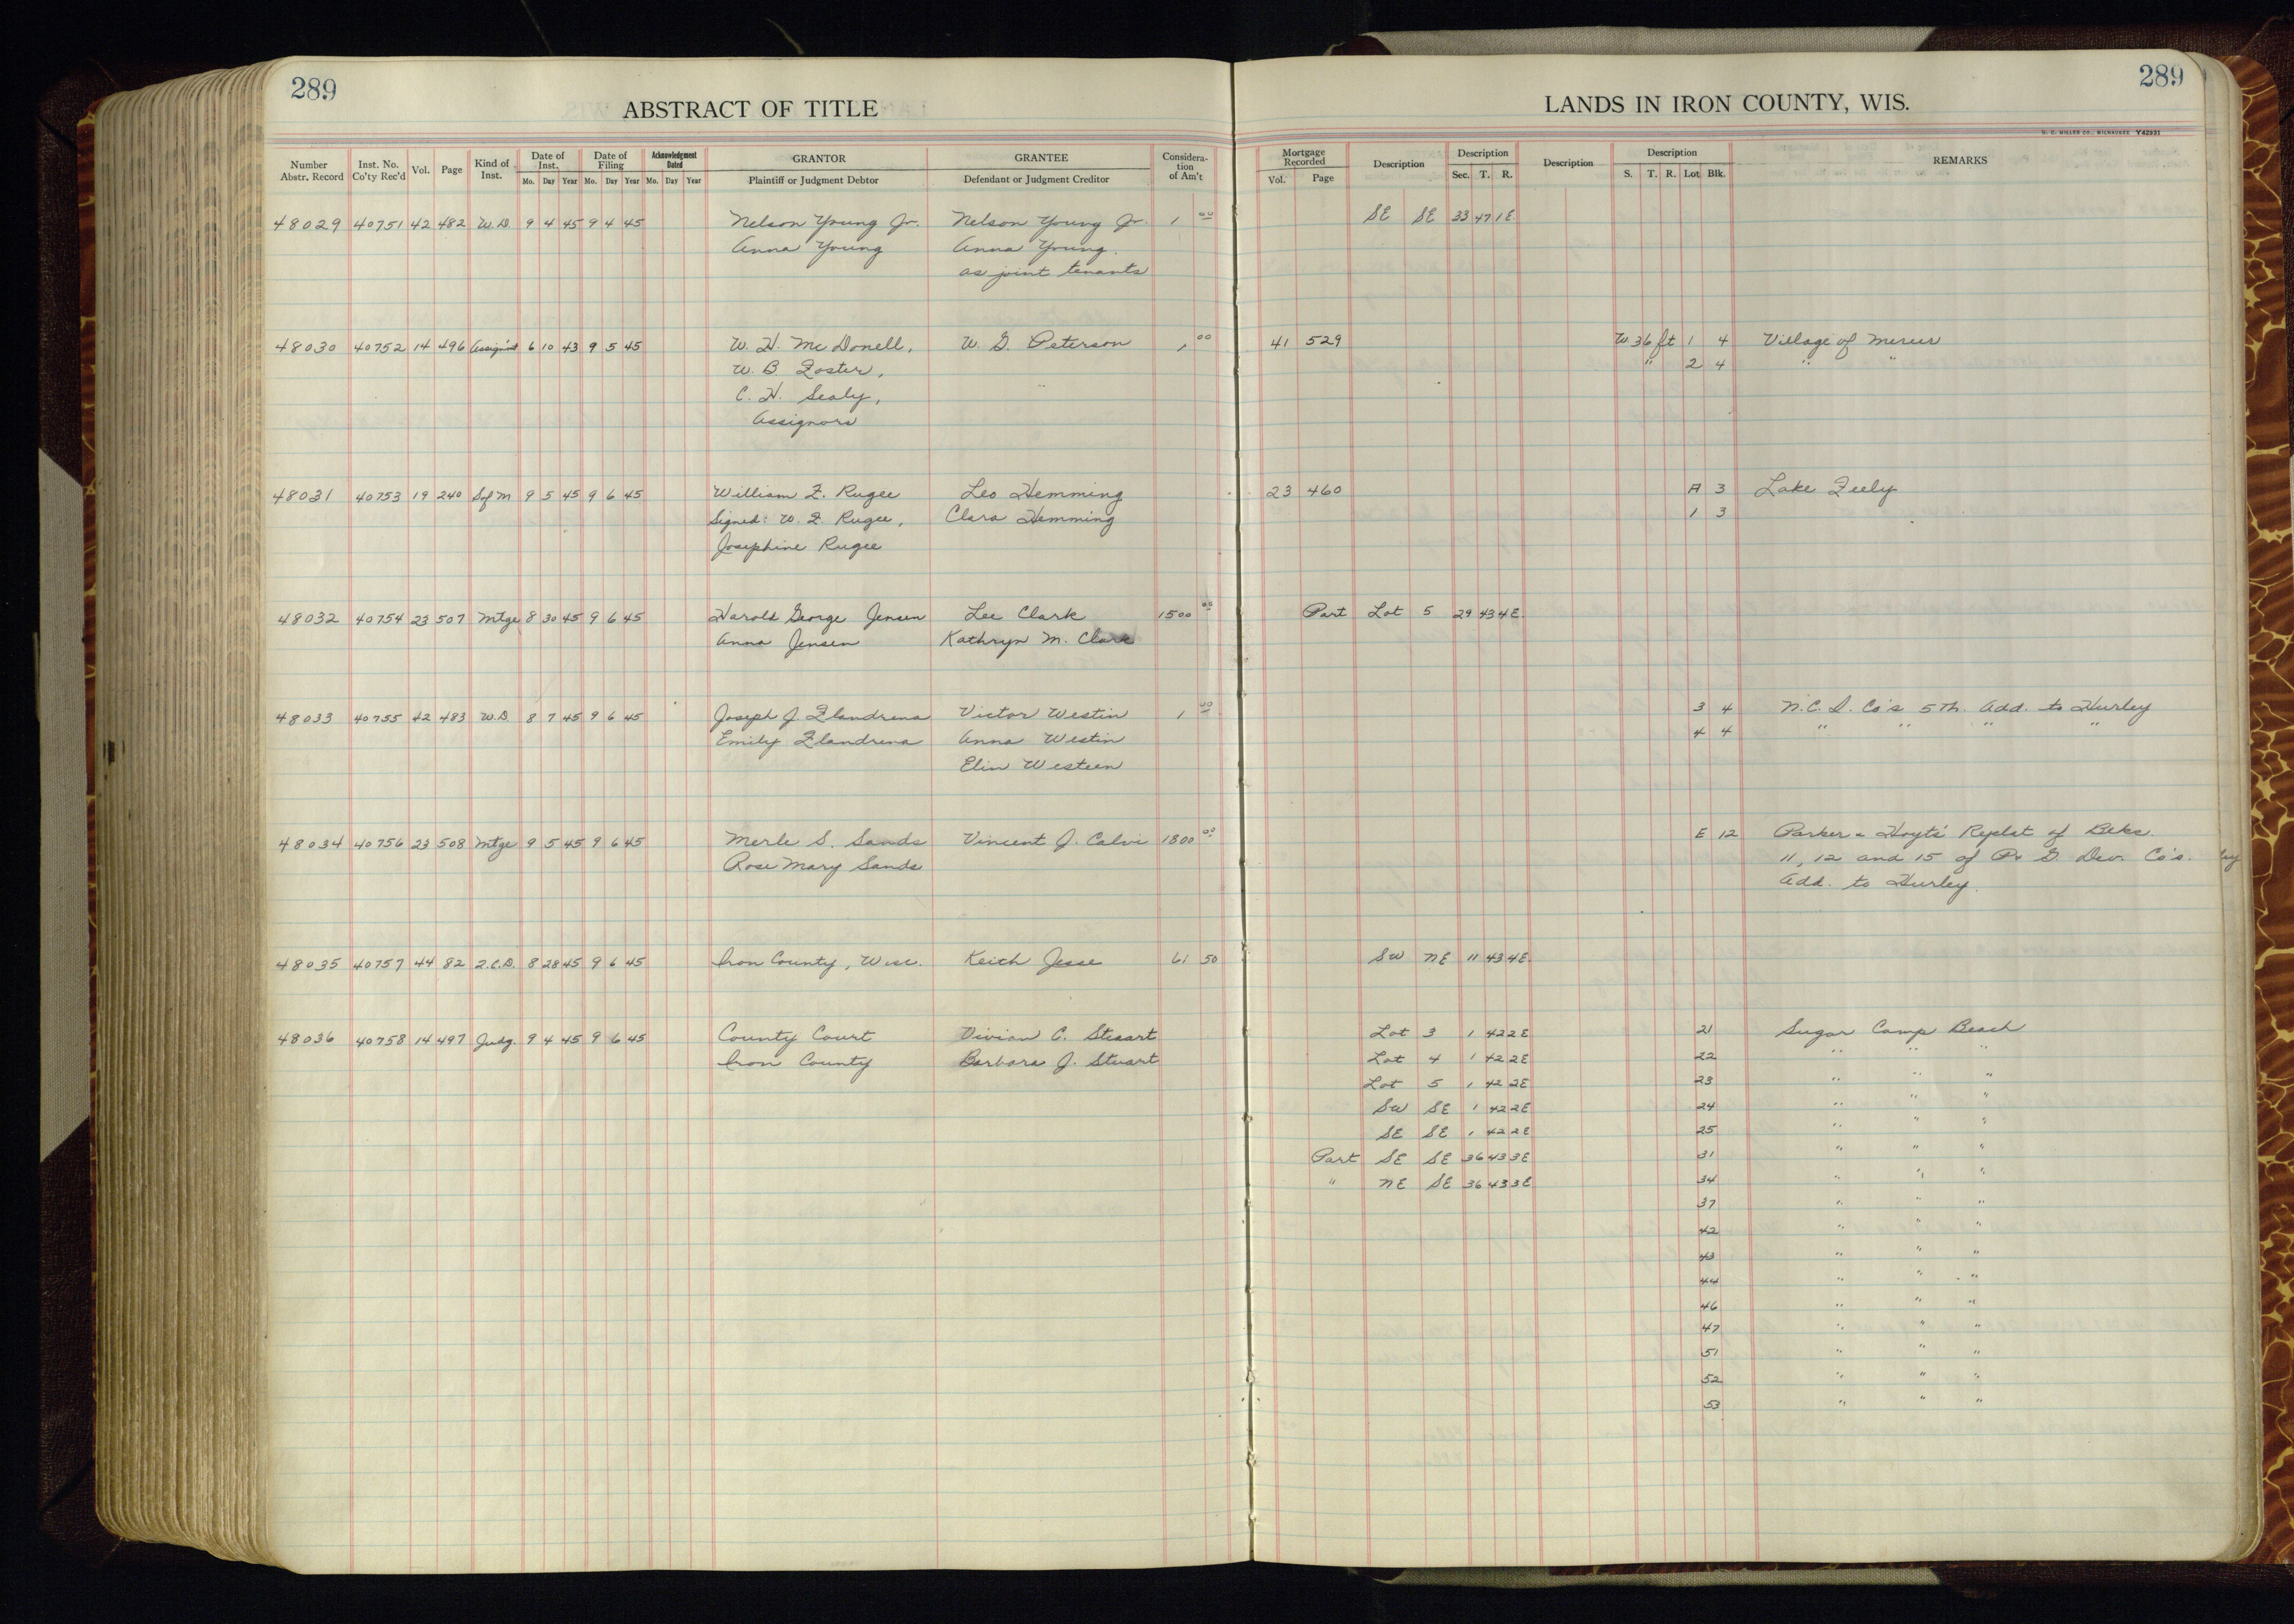 289
ABSTRACT OF TITLE
Number Abstr. Record Inst. No. Co'ty Rec'd Vol. Page Kind of Inst. Date of Inst. Mo. Day Year Date of Filing Mo. Day Year Acknowledgment Dated Mo. Day Year GRANTOR Plaintiff or Judgment Debtor GRANTEE Defendant or Judgment Creditor Considera-tion of Am't
48029 40751 42 482 W.D. 9 4 45 9 4 45 Nelson Young Jr. Nelson Young Jr. 1 00
Anna Young Anna Young
as joint tenants
48030 40752 14 496 Assign'mt 6 10 43 9 5 45 W. H. McDonell, W. G. Peterson 1 00
W. B. Foster,
C. H. Sealy,
Assignors
48031 40753 19 240 S of M 9 5 45 9 6 45 William F. Rugee Leo Hemming
Signed: W. F. Rugee, Clara Hemming
Josephine Rugee
48032 40754 23 507 Mtge 8 30 45 9 6 45 Harold George Jensen Lee Clark 1500 00
Anna Jensen Kathryn M. Clark
48033 40755 42 483 W.D. 8 7 45 9 6 45 Joseph J Flandrena Victor Westin 1 00
Emily Flandrena Anna Westin
Elin Westeen
48034 40756 23 508 Mtge 9 5 45 9 6 45 Merle S. Sands Vincent J. Calvi 1800 00
Rose Mary Sands
48035 40757 44 82 2.C.D. 8 28 45 9 6 45 Iron County, Wisc. Keith Jesse 61 50
48036 40758 14 497 Judg. 9 4 45 9 6 45 County Court Vivian C. Stuart
Iron County Barbara J. Stuart
289
LANDS IN IRON COUNTY, WIS.
H. C. MILLER CO., MILWAUKEE Y42931
Mortgage Recorded Vol. Page Description Description Sec. T. R. Description Description S. T. R. Lot Blk. REMARKS
SE SE 33 47 1E
41 529 W. 36 ft 1 4 Village of Mercer
" 2 4 " "
23 460 A 3 Lake Feely
1 3
Part Lot 5 29 43 4E.
3 4 N.C.I. Co's 5th. Add. to Hurley
4 4 " " " "
E 12 Parker & Hoyts' Replat of Blks.
11, 12 and 15 of Pr G. Dev. Co's.
Add. to Hurley.
SW NE 11 43 4E.
Lot 3 1 42 2E 21 Sugar Camp Beach
Lot 4 1 42 2E 22 " " "
Lot 5 1 42 2E 23 " " "
SW SE 1 42 2E 24 " " "
SE SE 1 42 2E 25 " " "
Part SE SE 36 43 3E 31 " " "
" NE SE 36 43 3E 34 " " "
37 " " "
42 " " "
43 " " "
44 " " "
46 " " "
47 " " "
51 " " "
52 " " "
53 " " "